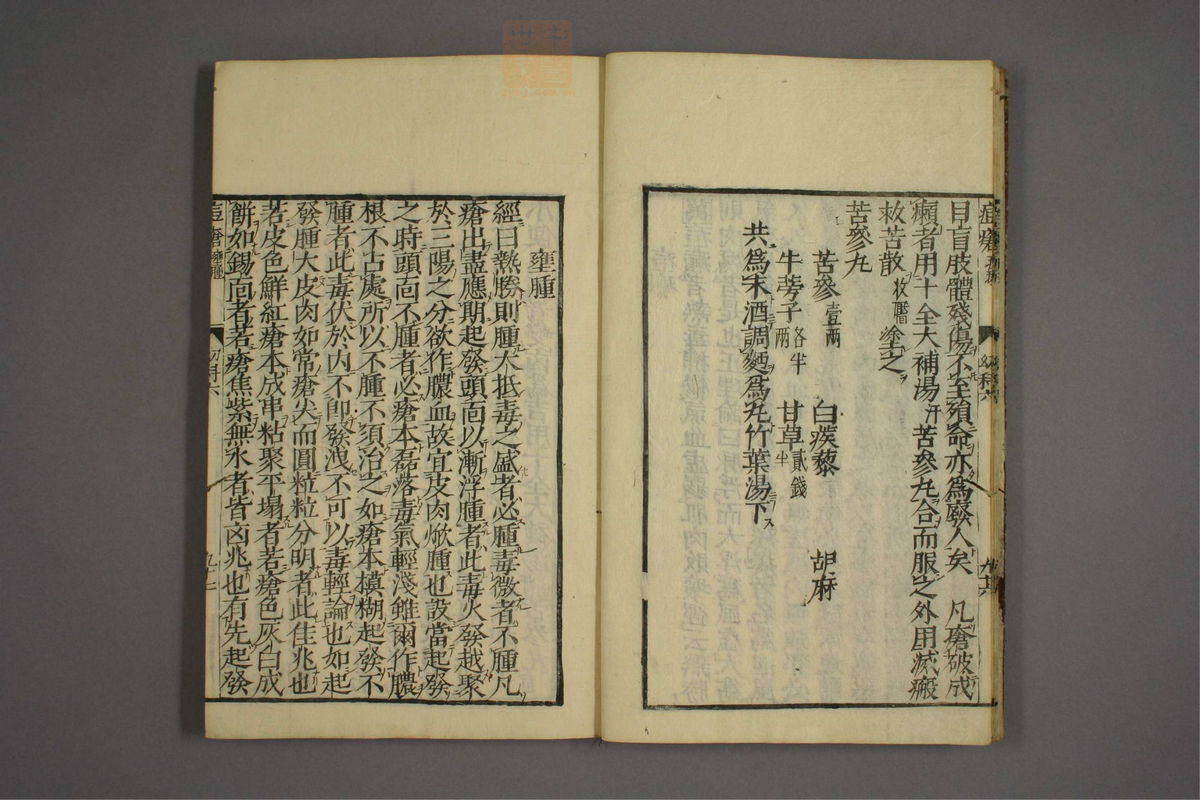 痘瘡
幼科六
目盲肢體殘傷不至殞命亦爲廢人矣　凡瘡破成
癩者用十全大補湯汗苦參丸合而服之外用滅瘢
救苦散收靨塗之
苦參丸
苦參壹兩　白蒺藜　胡麻
牛蒡子各半兩　甘草貳錢半
共爲末酒調麪爲丸竹葉湯下
壅腫
經曰熱勝則腫大抵毒之盛者必腫毒微者不腫凡
瘡出盡應期起發頭面以漸浮腫者此毒火發越聚
於三陽之分欲作膿血故宜皮肉焮腫也設當起發
之時頭面不腫者必瘡本磊落毒氣輕淺雖爾作膿
根不占處所以不腫不須治之如瘡本模糊起發不
腫者此毒伏於內不卽發洩不可以毒輕論也如起
發腫大皮肉如常瘡尖而圓粒粒分明者此佳兆也
若皮色鮮紅瘡本成串粘聚平塌者若瘡色灰白成
餅如錫面者若瘡焦紫無水者皆凶兆也有先起發
痘瘡壅腫
幼科六